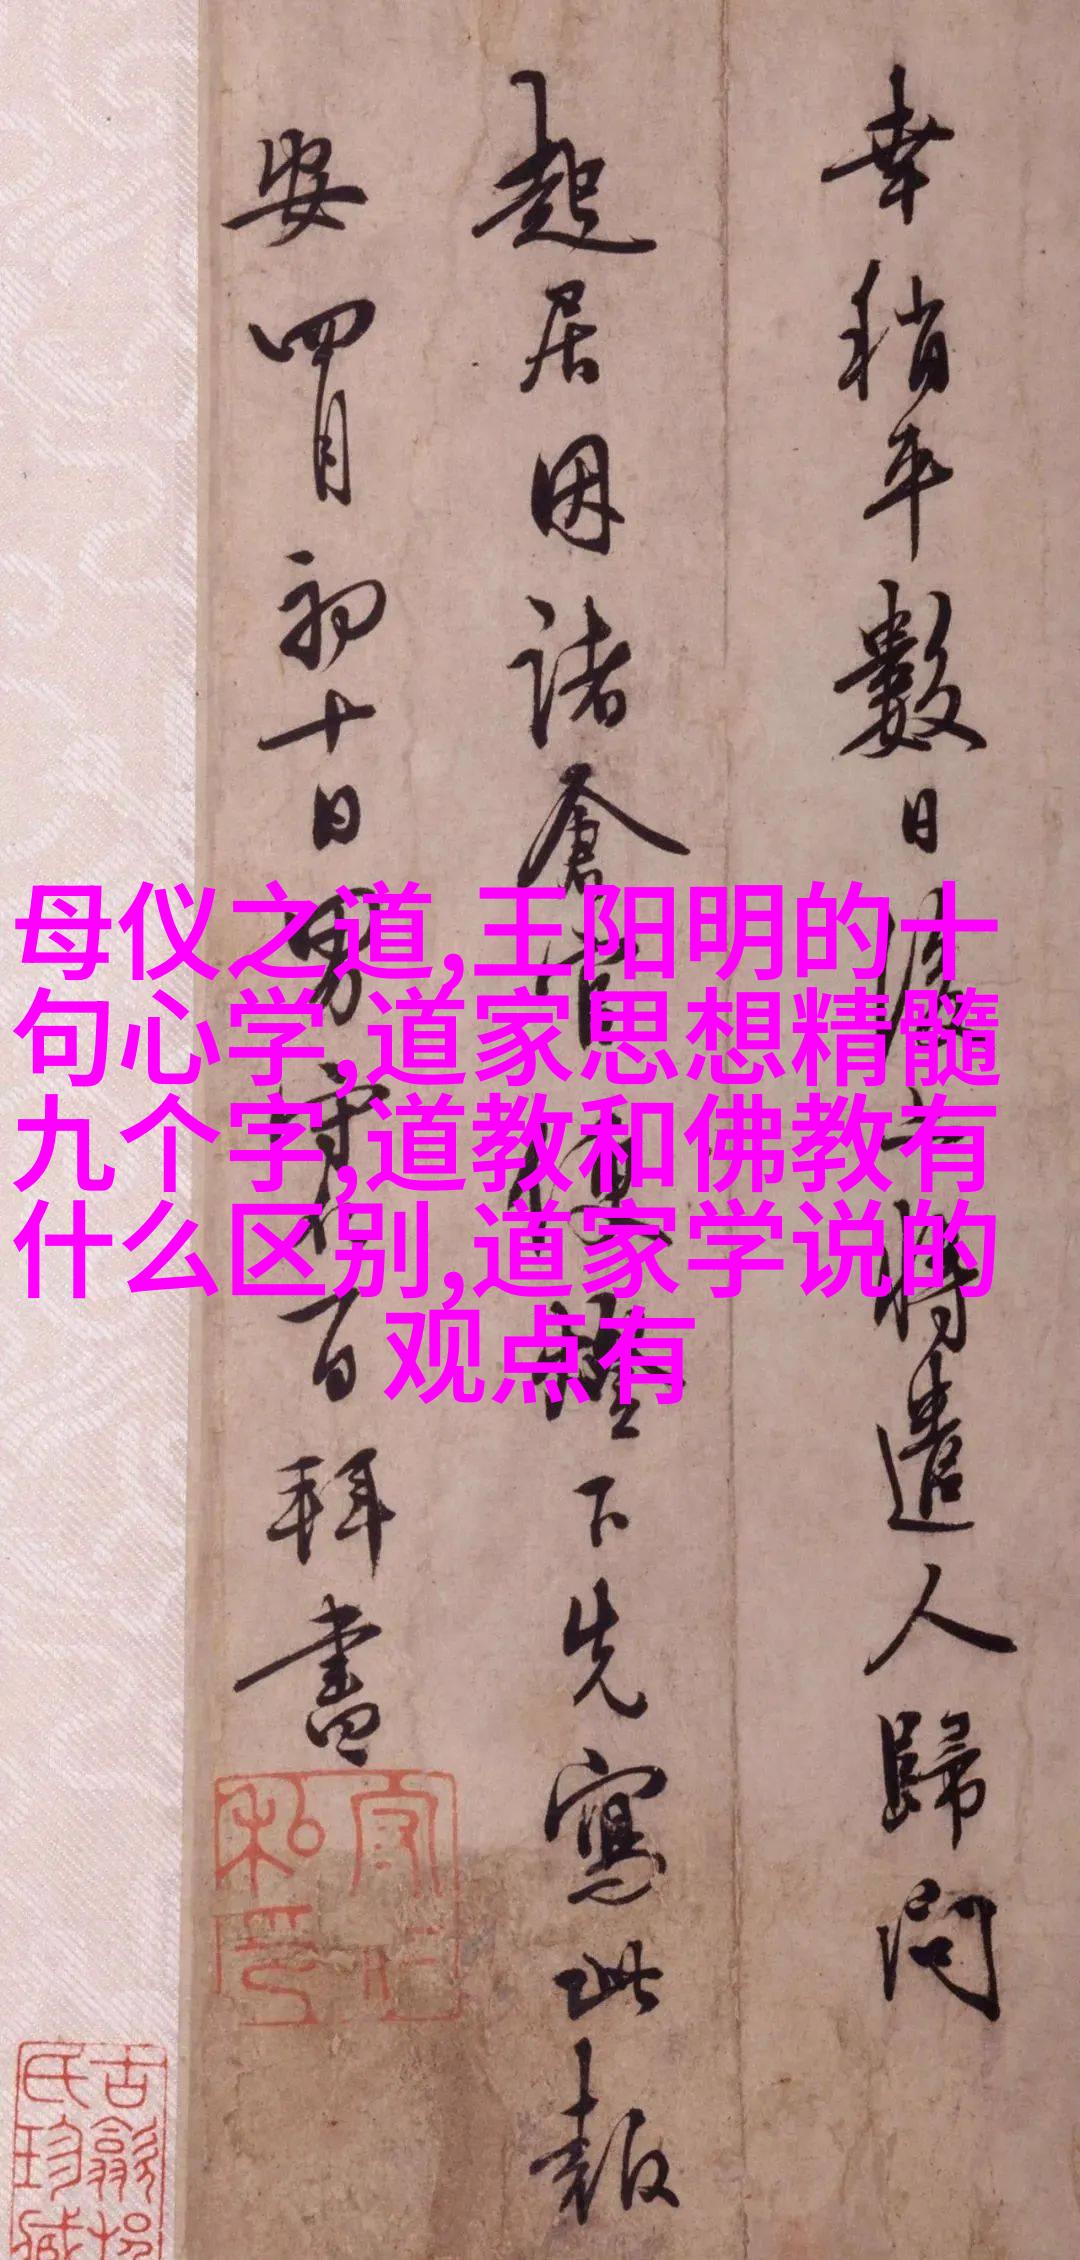 母仪之道,王阳明的十
句心学,道家思想精髓
九个字,道教和佛教有
什么区别,道家学说的
观点有
幸稍平數日 將遣人歸問
起居因諸倉官便 下先寫此報
安四月初十日男守仁百拜書
私印
古歙
氏珍藏